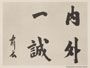 内外
一誠